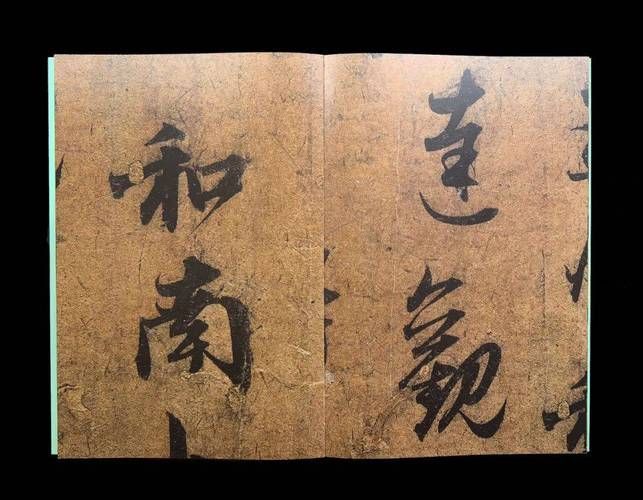 達觀
和南